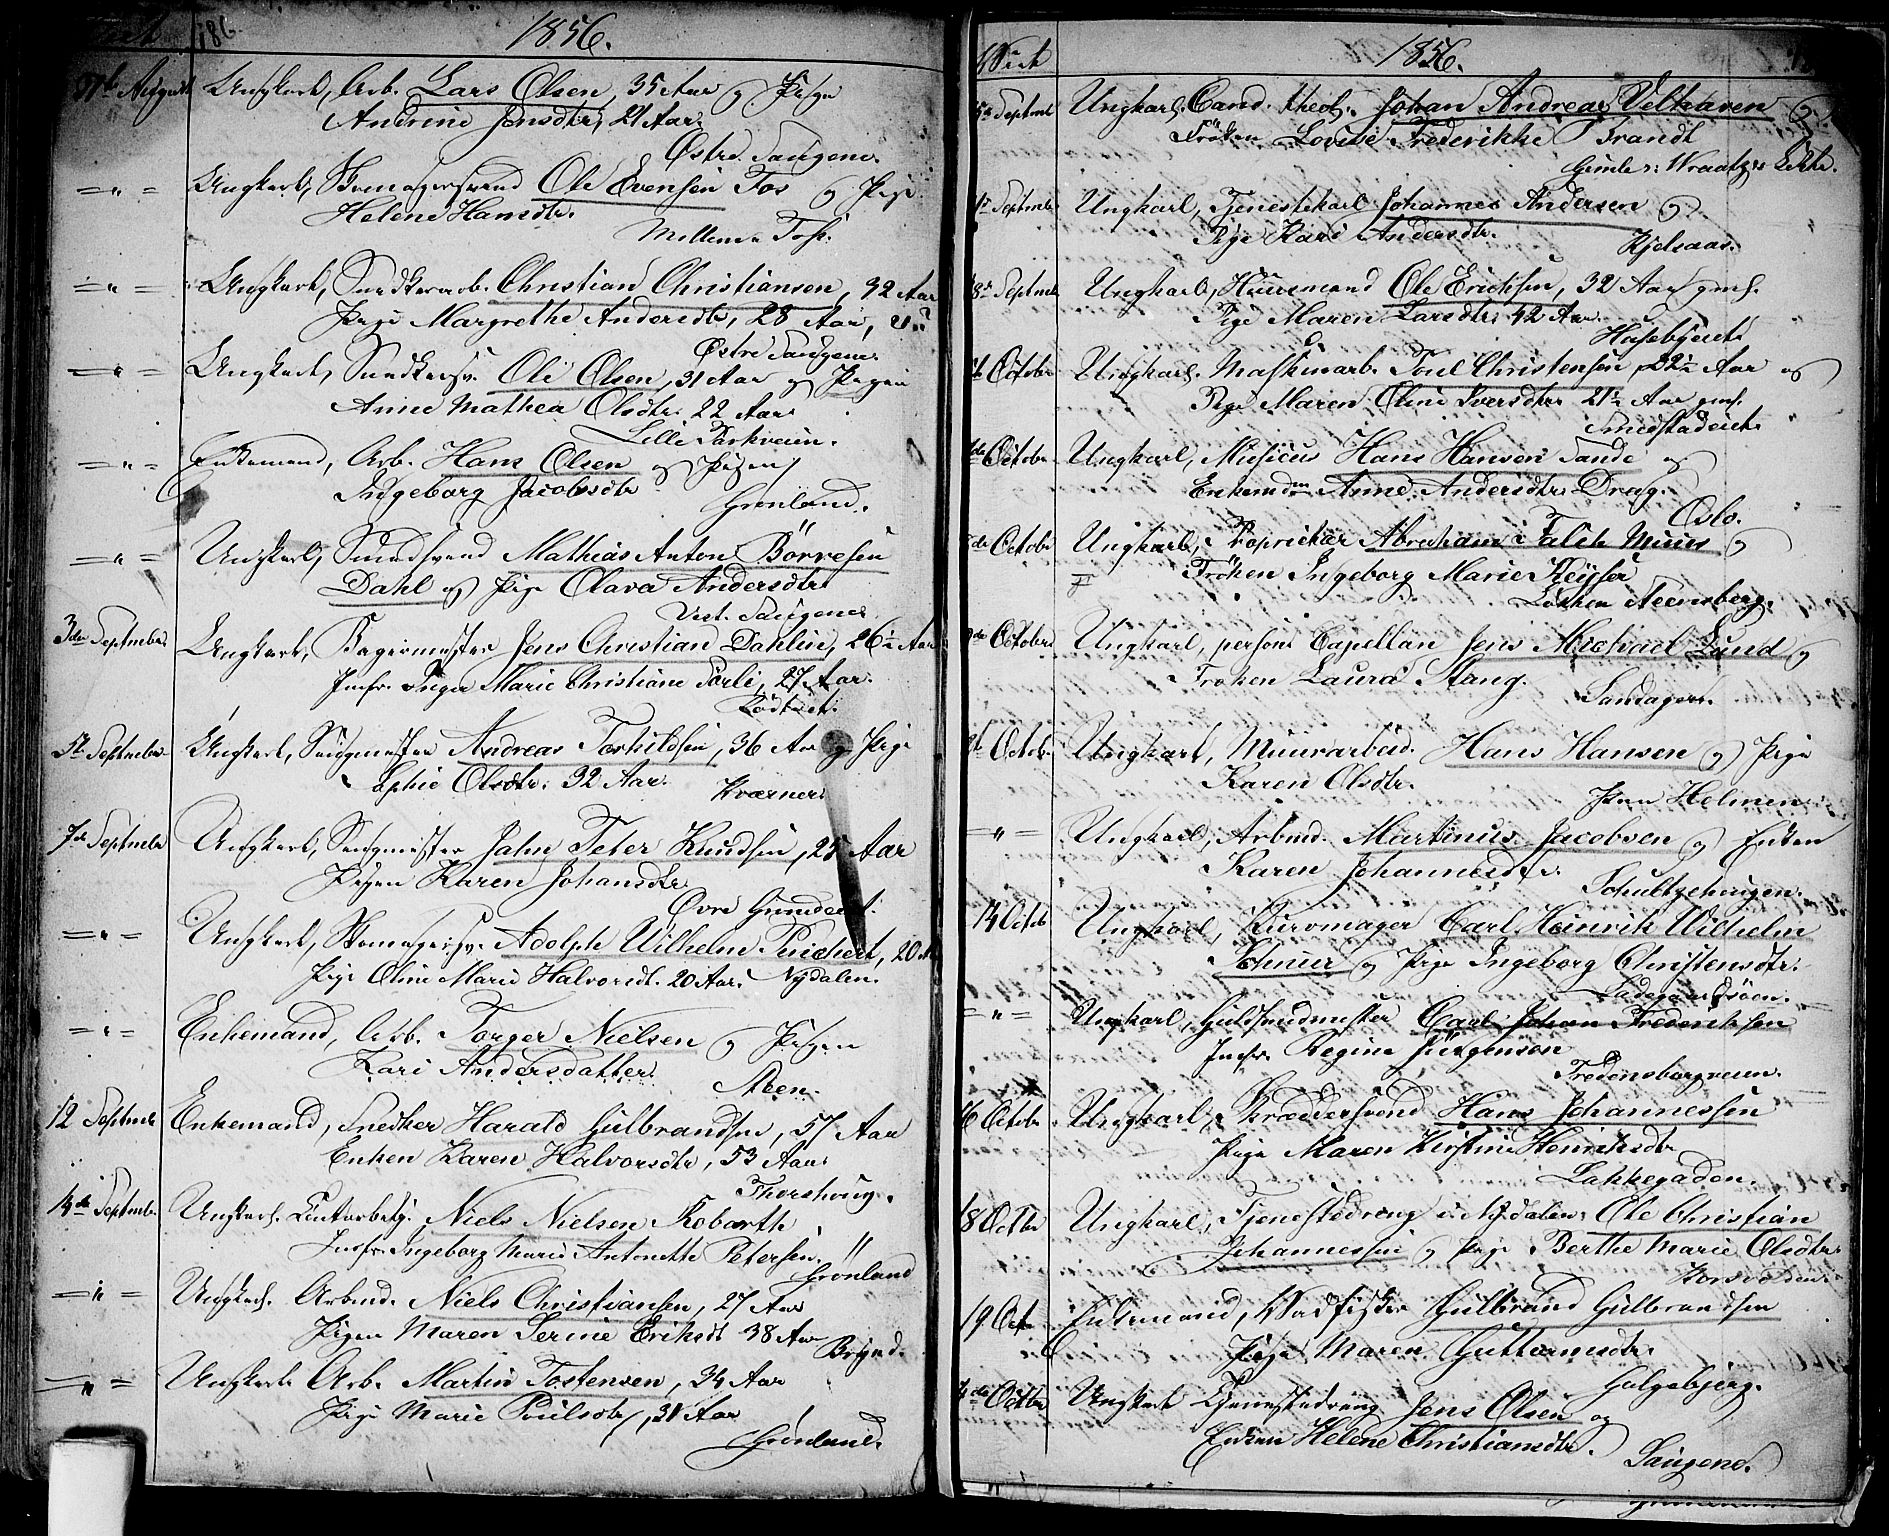 Viet
186.
1856.
31te August Ungkarl, Arb. Lars Olsen, 35 Aar og Pigen
Andrine Jensdtr, 21 Aar.
Østre Saugene.
— " — Ungkarl, Skomagersvend Ole Evensen Fos og Pige
Helene Hansdtr.
Mellem Fos.
— " — Ungkarl, Snedkerarb. Christian Christiansen, 32 Aar
Pige Margrethe Andersdtr, 28 Aar,
Østre Saugene.
— " — Ungkarl, Snedkersv. Ole Olsen, 31 Aar og Pigen
Anne Mathea Olsdtr. 22 Aar.
Lille Parkveien.
— " — Enkemand, Arb. Hans Olsen og Pigen
Ingeborg Jacobsdtr
Grønland.
— " — Ungkarl, Smedsvend Mathias Anton Börresen
Dahl og Pige Olava Andersdtr
Vest. Saugene
3die September Ungkarl, Bagermester Jens Christian Dahlin, 26½ Aar
Jmfr. Inger Marie Christiane Sorli, 27 Aar.
5te September Ungkarl, Saugmester Andreas Torkildsen, 36 Aar og Pige
Sophie Olsdtr. 32 Aar.
Kværner.
7de September Ungkarl, Saugmester John Peter Knudsen, 25 Aar
Pigen Karen Johansdtr
Øvre Grundset.
— " — Ungkarl, Skomagersv. Adolph Wilhelm Puichert, 20
Pige Oline Marie Halvorsdt. 20 Aar. Nydalen.
— " — Enkemand, Arb. Torger Nielsen og Pigen
Kari Andersdatter.
Steen.
12 Septembr Enkemand, Snedker Harald Gulbrandsen, 57 Aar
Enken Karen Halvorsdtr, 53 Aar.
Thorshoug.
14de Septembr. Ungkarl. Contorbetj. Niels Nielsen Robarth
Jmfr. Ingeborg Marie Antonette Petersen. "
Grönland
— " — Ungkarl. Arbmd. Niels Christiansen, 27 Aar
Pigen Maren Serine Eriksdt 38 Aar
Bryned.
— " — Ungkarl. Arb. Martin Tostensen, 34 Aar
Pige Marie Poulsdtr, 31 Aar
Grönland.
Viet
1856.
Septembr Ungkarl. Cand. theol. Johan Andreas Velhaven og
Fröken Lovise Frederikke Brandt
Gimle: Wraatzes Løkke.
Septembr Ungkarl, Tjenestekarl Johannes Andersen og
Pige Kari Andersdtr.
Kjelsaas.
Septembr Ungkarl, Huusmand Ole Ericksen, 32 Aar gml.
Pige Maren Larsdtr. 42 Aar
Husebyeiet
October Ungkarl. Maskinarb. Poul Christensen 22½ Aar og
Pige Maren Oline Iversdtr 21½ Aar gml.
Smedstadeiet
October Ungkarl, Musicus Hans Hansen Sande og
Enkemdm Anne Andersdtr. Drag.
Oslo.
October Ungkarl, Proprietær Abraham Falck Muus og
Fröken Ingeborg Marie Keyser
Løkken Steensberg.
October Ungkarl, person: Capellan Jens Michael Lund og
Frøken Laura Stang.
Sandager.
October Ungkarl, Muurarbeid. Hans Hansen og Pige
Karen Olsdtr.
Paa Helmen
— " — Ungkarl, Arbmd. Martinus Jacobsen og Enken
Karen Johannesdtr.
Schultzehaugen.
14 October Ungkarl, Kurvmager Carl Heinrik Wilhelm
Schnur og Pige Ingeborg Christensdtr.
Ladegaardsöen.
— " — Ungkarl, Guldsmedmester Carl Johan Frederiksen
Jmfr. Regine Jürgensen
Fredensborgveien.
16 October Ungkarl, Skrædersvend Hans Johannessen
Pige Maren Kirstine Henriksdtr
Lakkegaden.
18 Octbr Ungkarl, Tjenestedreng i Nydalen, Ole Christian
Johannessen og Pige Berthe Marie Olsdtr.
Korsvolden.
19 Oct Enkemand, Gulbrand Gulbrandsen
Pige Maren Guttormsdtr.
Galgebjerg.
Octbr Ungkarl Tjenestedreng Jens Olsen og
Enken Helene Christiansdtr.
Saugene.